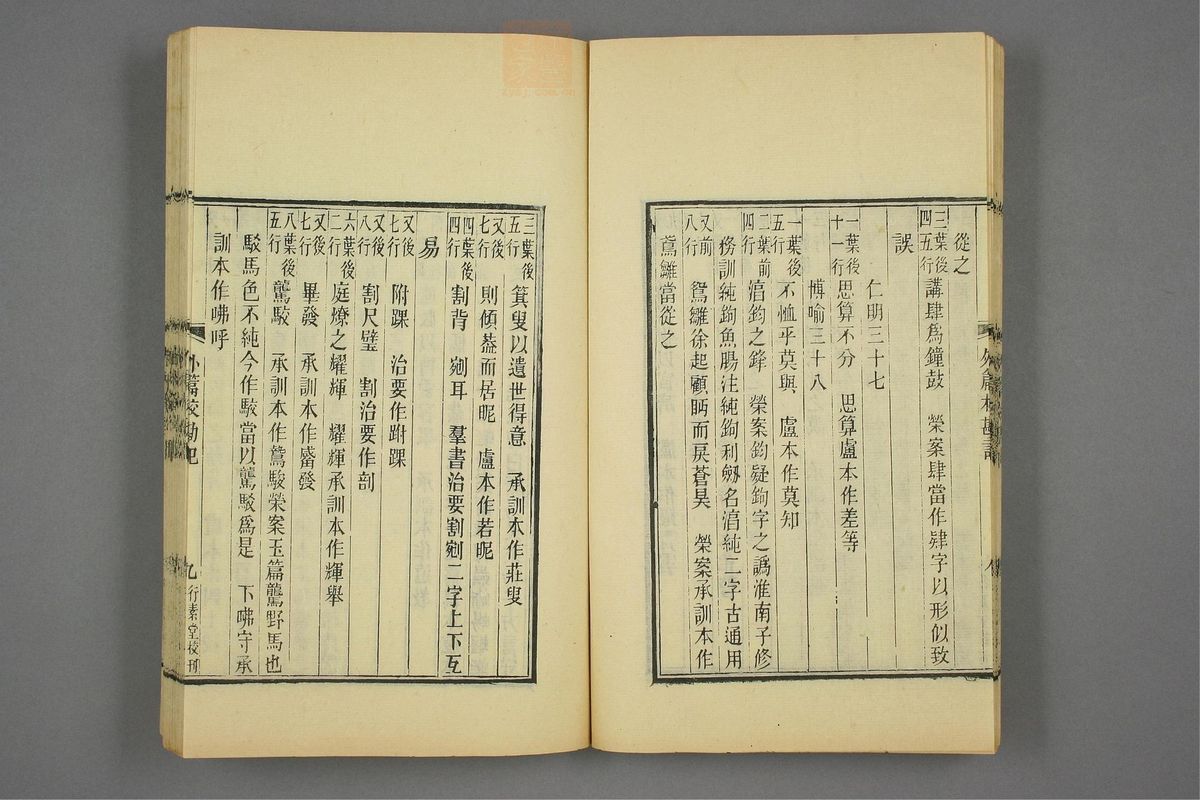 從之
三葉後四五行講肆爲鐘鼓 榮案肆當作肄字以形似致
誤
仁明三十七
一葉後十一行思算不分 思算盧本作差等
博喻三十八
一葉後五行不恤乎莫與 盧本作莫知
二葉前四行湻鈞之鋒 榮案鈞疑鉤字之譌淮南子修
務訓純鉤魚腸注純鉤利劒名湻純二字古通用
又前八行鴛雛徐起顧眄而戾蒼昊 榮案承訓本作
鵷雛當從之
三葉後五行箕叟以遺世得意 承訓本作莊叟
又後七行則傾葢而居昵 盧本作若昵
四葉後四行割背 剜耳 羣書治要割剜二字上下互
易
又後七行附踝 治要作跗踝
又後八行割尺璧 割治要作剖
六葉後二行庭燎之耀輝 耀輝承訓本作輝舉
又後七行畢發 承訓本作觱發
八葉後五行驁駮 承訓本作騖駮榮案玉篇驁野馬也
駮馬色不純今作駮當以驁駮爲是 下咈守承
訓本作咈呼
外篇校勘記
九
行素堂校刊